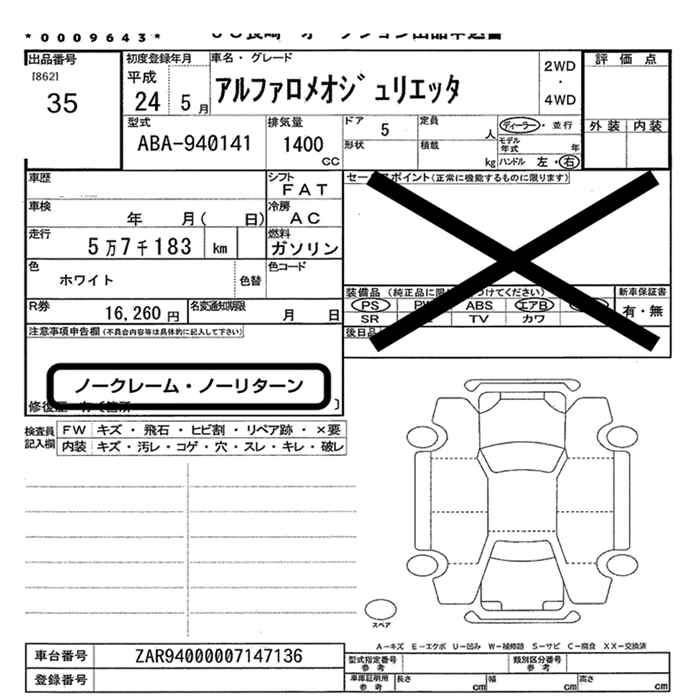 *0009643* JU長崎 オークション出品申込書
出品番号 初度登録年月 車名・グレード 2WD ・ 4WD 評価点
[862] 平成
35 24 5月 アルファロメオジュリエッタ
型式 排気量 ドア 5 定員 人 ディーラー・並行 外装 内装
ABA-940141 1400 CC 形状 積載 kg モデル年式 年
ハンドル 左・右
車歴 シフト FAT セールスポイント(正常に機能するものに限ります)
車検 年 月( 日) 冷房 AC
走行 5万7千183 km 燃料 ガソリン
色 ホワイト 色替 色コード
装備品 (純正品に限 つけてください) 新車保証書
PS PW ABS エアB 有・無
SR TV カワ
R券 16,260円 名変通知期限 月 日
後日品
注意事項申告欄(不具合内容等は具体的に記入して下さい)
ノークレーム・ノーリターン
修復歴 有 箇所 〕
検査員記入欄 FW キズ・飛石・ヒビ割・リペア跡・×要
内装 キズ・汚レ・コゲ・穴・スレ・キレ・破レ
スペア
A-キズ E-エクボ U-凹み W-補修跡 S-サビ C-腐食 XX-交換済
車台番号 ZAR94000007147136 型式指定番号 参考 類別区分番号 参考
登録番号 車庫証明用 参考 長さ cm 幅 cm 高さ cm